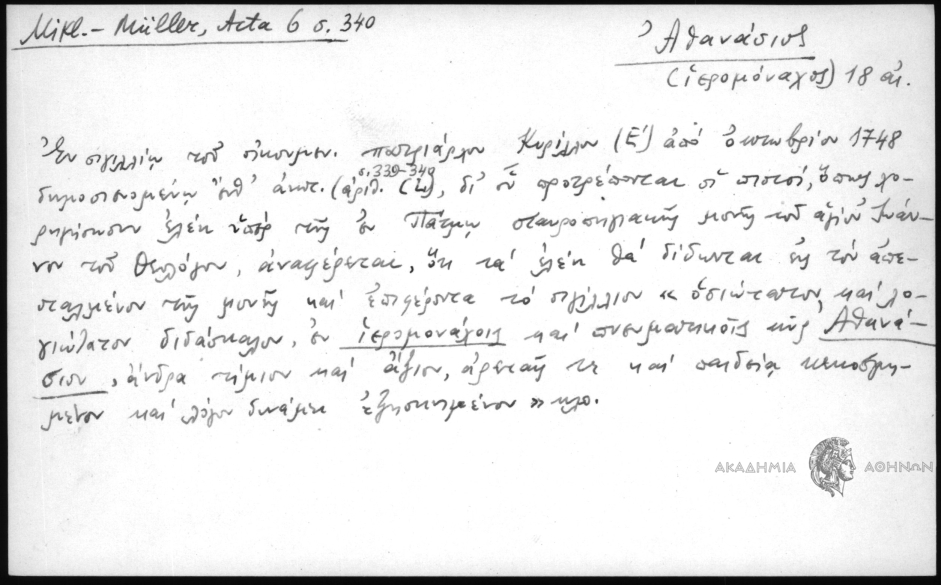 Mikl.-Müller, Acta 6 σ. 340
Ἀθανάσιος
(ἱερομόναχος) 18 αἰ.
Ἐν σιγιλλίῳ τοῦ οἰκουμεν. πατριάρχου Κυρίλλου (Ε΄) ἀπό ὀκτωβρίου 1748
σ. 339-340
δημοσιευομένῳ ἐνθ' ἀνωτ. (ἀριθ. ), δι' οὗ προτρέπονται οἱ πιστοί, ὅπως χο-
ρηγήσουν ἐλέη ὑπέρ τῆς ἐν Πάτμῳ σταυροπηγιακῆς μονῆς τοῦ ἁγίου Ἰωάν-
νου τοῦ Θεολόγου, ἀναφέρεται, ὅτι τά ἐλέη θά δίδωνται εἰς τόν ἀπε-
σταλμένον τῆς μονῆς καί ἐπιφέροντα τό σιγίλλιον « ὁσιώτατον, καί λο-
γιώτατον διδάσκαλον, ἐν ἱερομονάχοις καί πνευματικοῖς κύρ Ἀθανά-
σιον, ἄνδρα τίμιον καί ἄξιον, ἀρετῇ τε καί παιδείᾳ κεκοσμη-
μένον καί λόγου δυνάμει ἐξησκημένον » κλπ.
ΑΚΑΔΗΜΙΑ ΑΘΗΝΩΝ